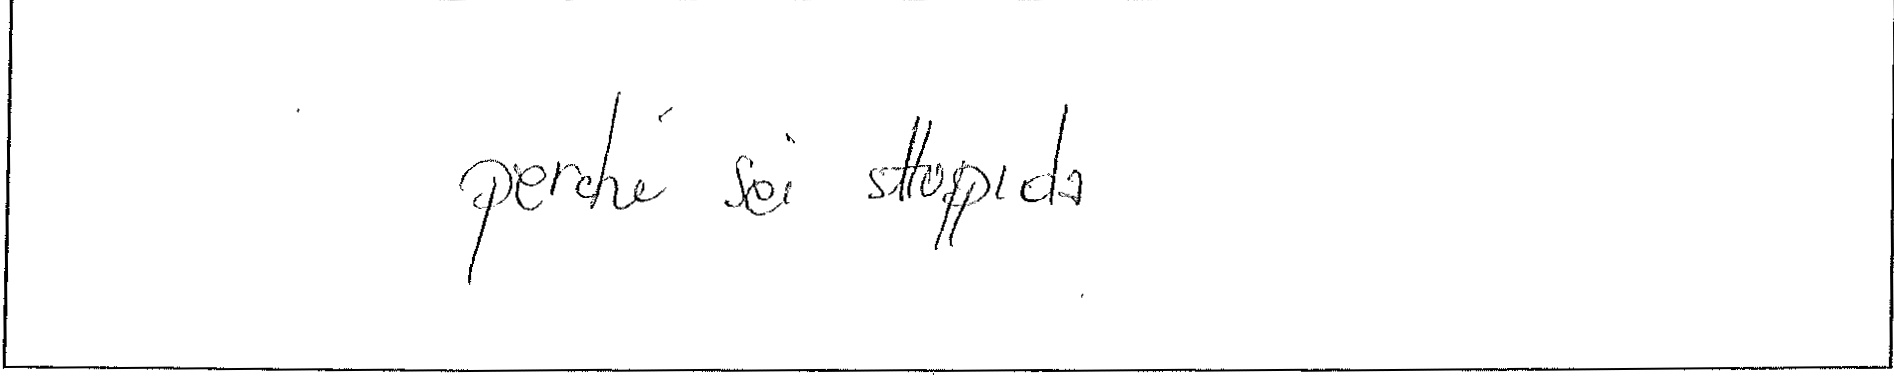 perché sei sttuppida